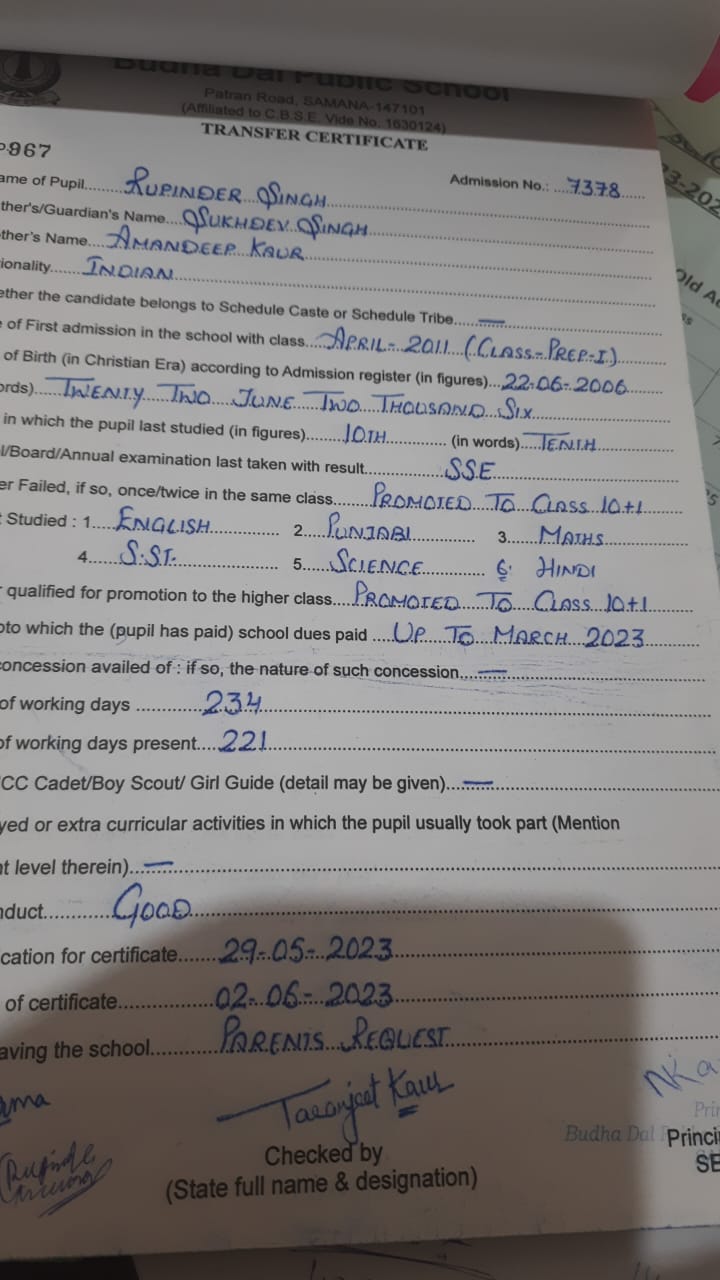 Budha Dal Public School
Patran Road, SAMANA-147101
(Affiliated to C.B.S.E. Vide No. 1630124)
TRANSFER CERTIFICATE
967
Admission No.: 7378
ame of Pupil RUPINDER SINGH
ther's/Guardian's Name SUKHDEV SINGH
ther's Name AMANDEEP KAUR
ionality INDIAN
ether the candidate belongs to Schedule Caste or Schedule Tribe —
of First admission in the school with class APRIL-2011 (CLASS-PREP-I)
of Birth (in Christian Era) according to Admission register (in figures) 22-06-2006
ords) TWENTY TWO JUNE TWO THOUSAND SIX
in which the pupil last studied (in figures) 10TH (in words) TENTH
l/Board/Annual examination last taken with result SSE
er Failed, if so, once/twice in the same class PROMOTED TO CLASS 10+1
t Studied : 1. ENGLISH 2. PUNJABI 3. MATHS
4. S.ST. 5. SCIENCE 6. HINDI
qualified for promotion to the higher class PROMOTED TO CLASS 10+1
pto which the (pupil has paid) school dues paid UP TO MARCH 2023
concession availed of : if so, the nature of such concession —
of working days 234
of working days present 221
CC Cadet/Boy Scout/ Girl Guide (detail may be given) —
yed or extra curricular activities in which the pupil usually took part (Mention
nt level therein) —
nduct GOOD
cation for certificate 29-05-2023
of certificate 02-06-2023
aving the school PARENTS REQUEST
Taranjeet Kaur
Budha Dal
Princi
Checked by
(State full name & designation)
SE
Old A